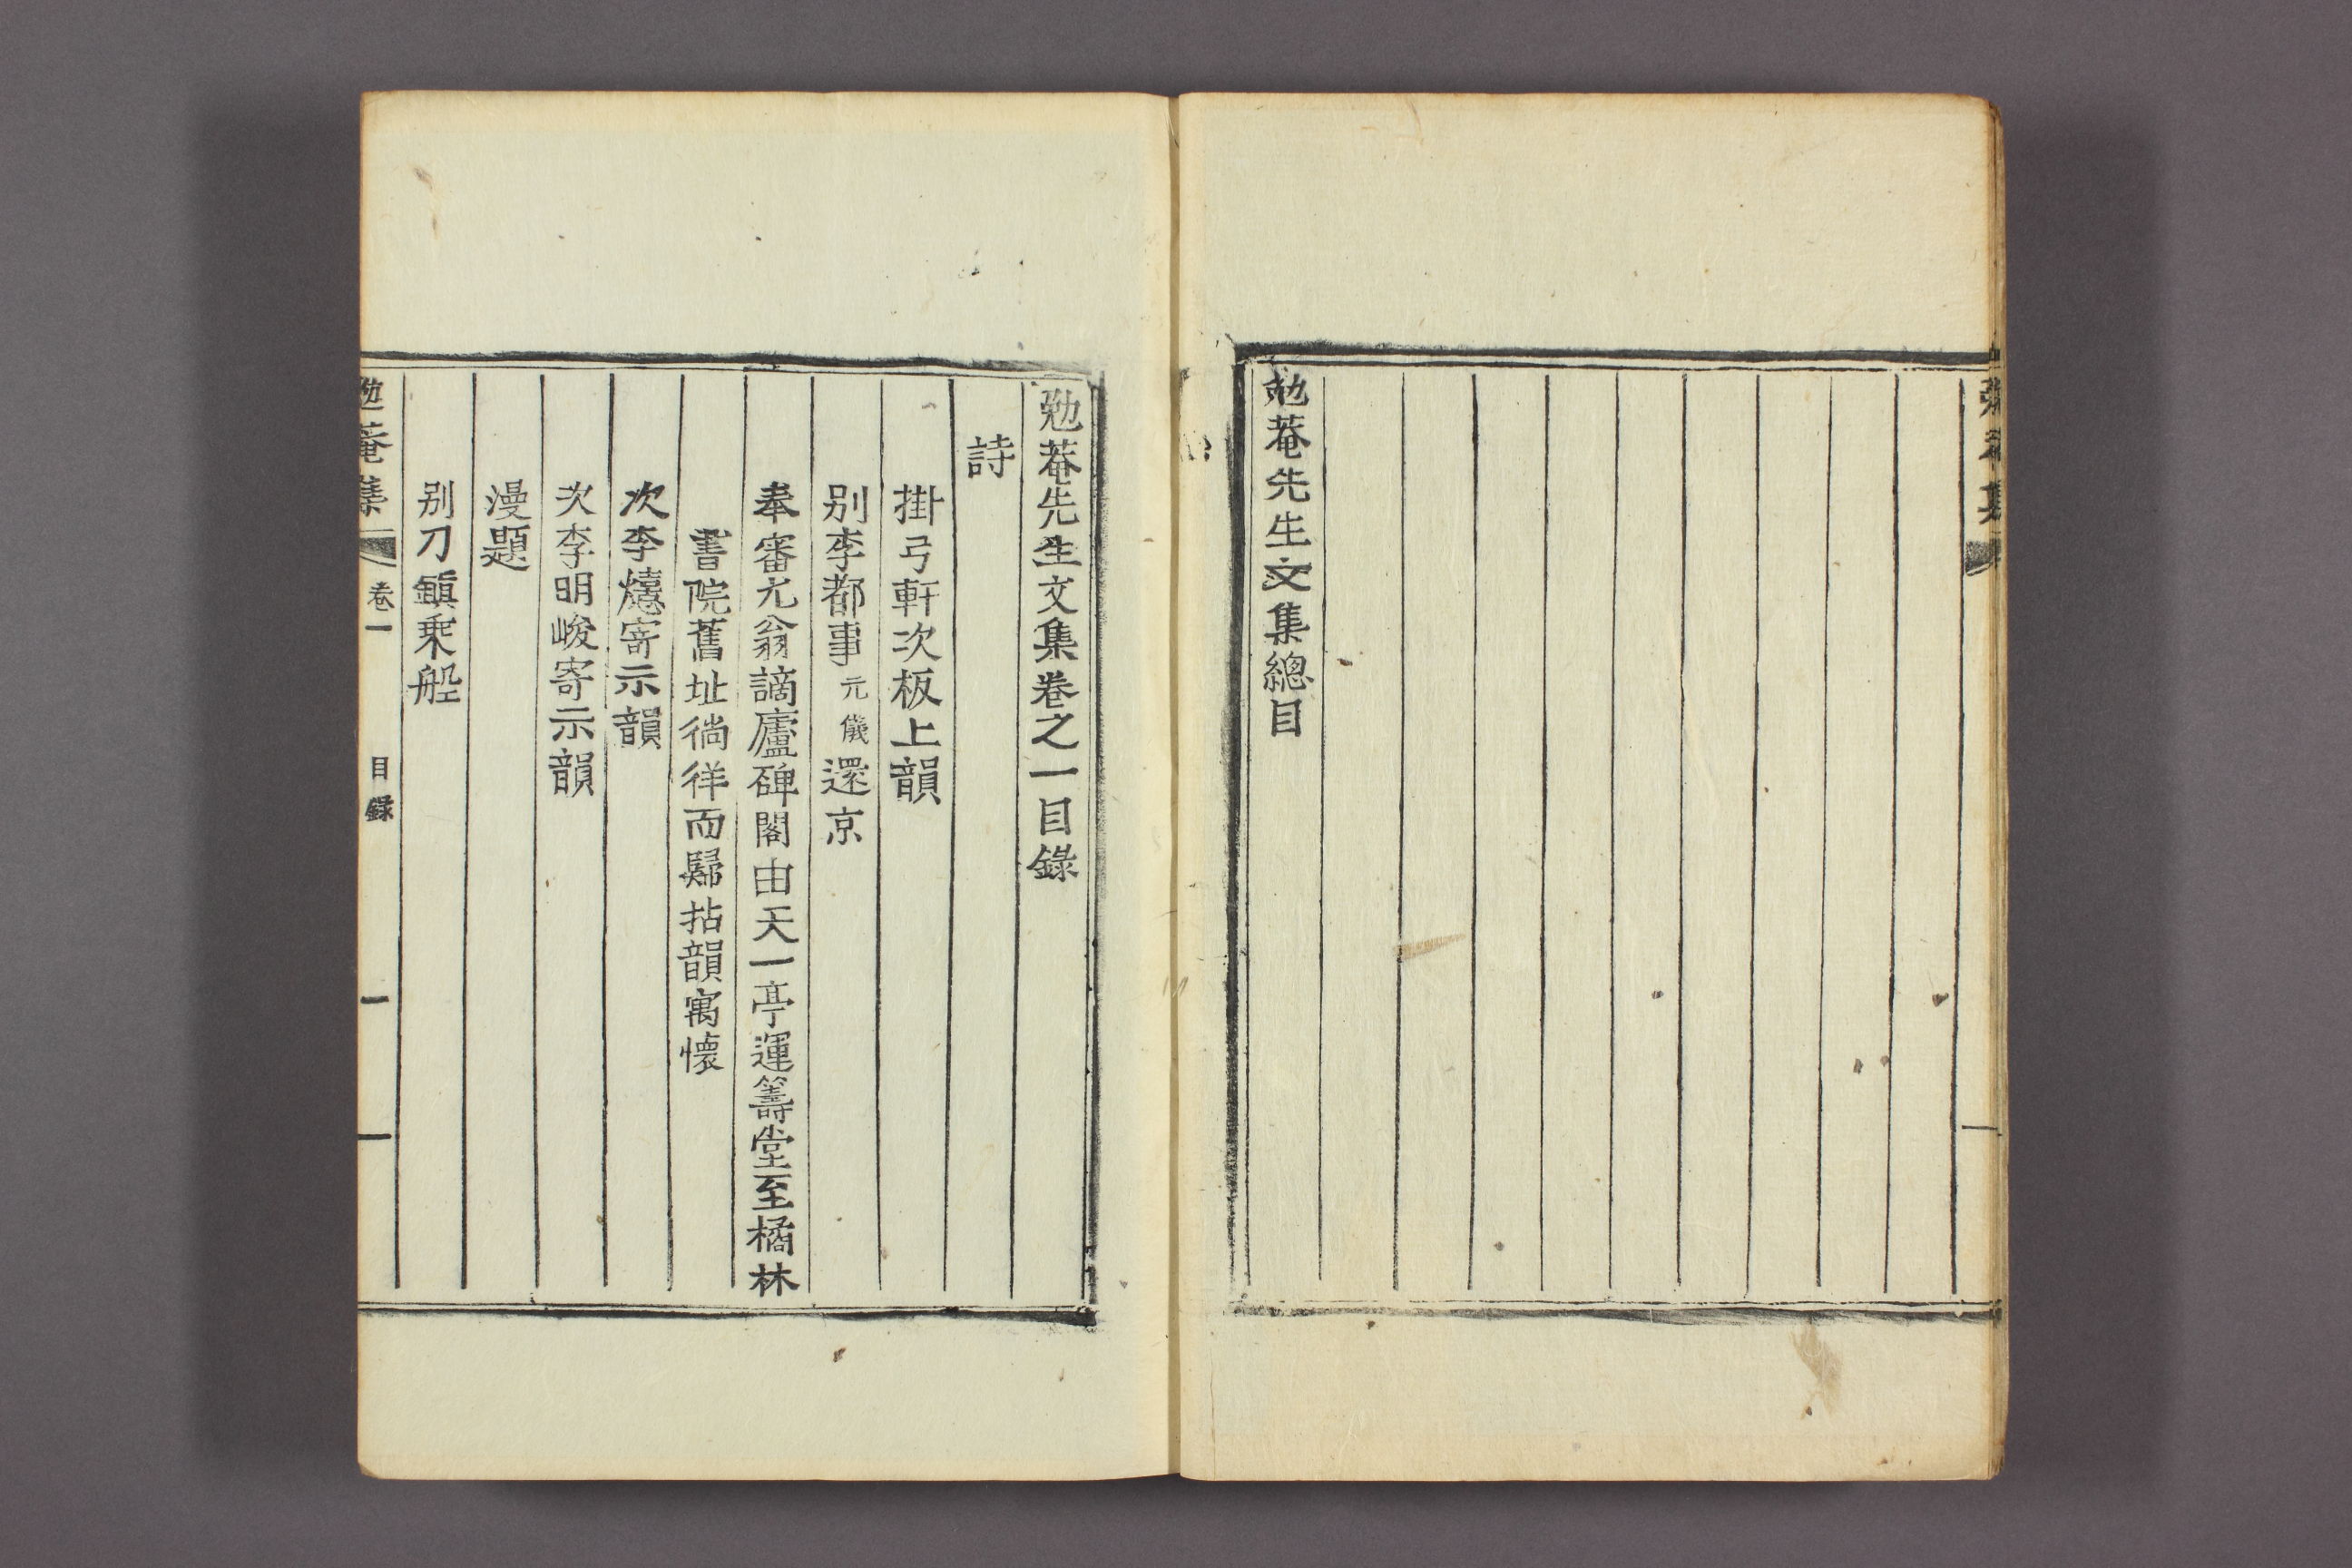 勉菴先生文集總目
勉菴先生文集卷之一目錄
詩
掛弓軒次板上韻
別李都事元儀還京
奉審尤翁謫廬碑閣由天一亭運籌堂至橘林
書院舊址徜徉而歸拈韻寓懷
次李熺寄示韻
次李明峻寄示韻
漫題
別刀鎭乘船
勉菴集 卷一 目錄 一